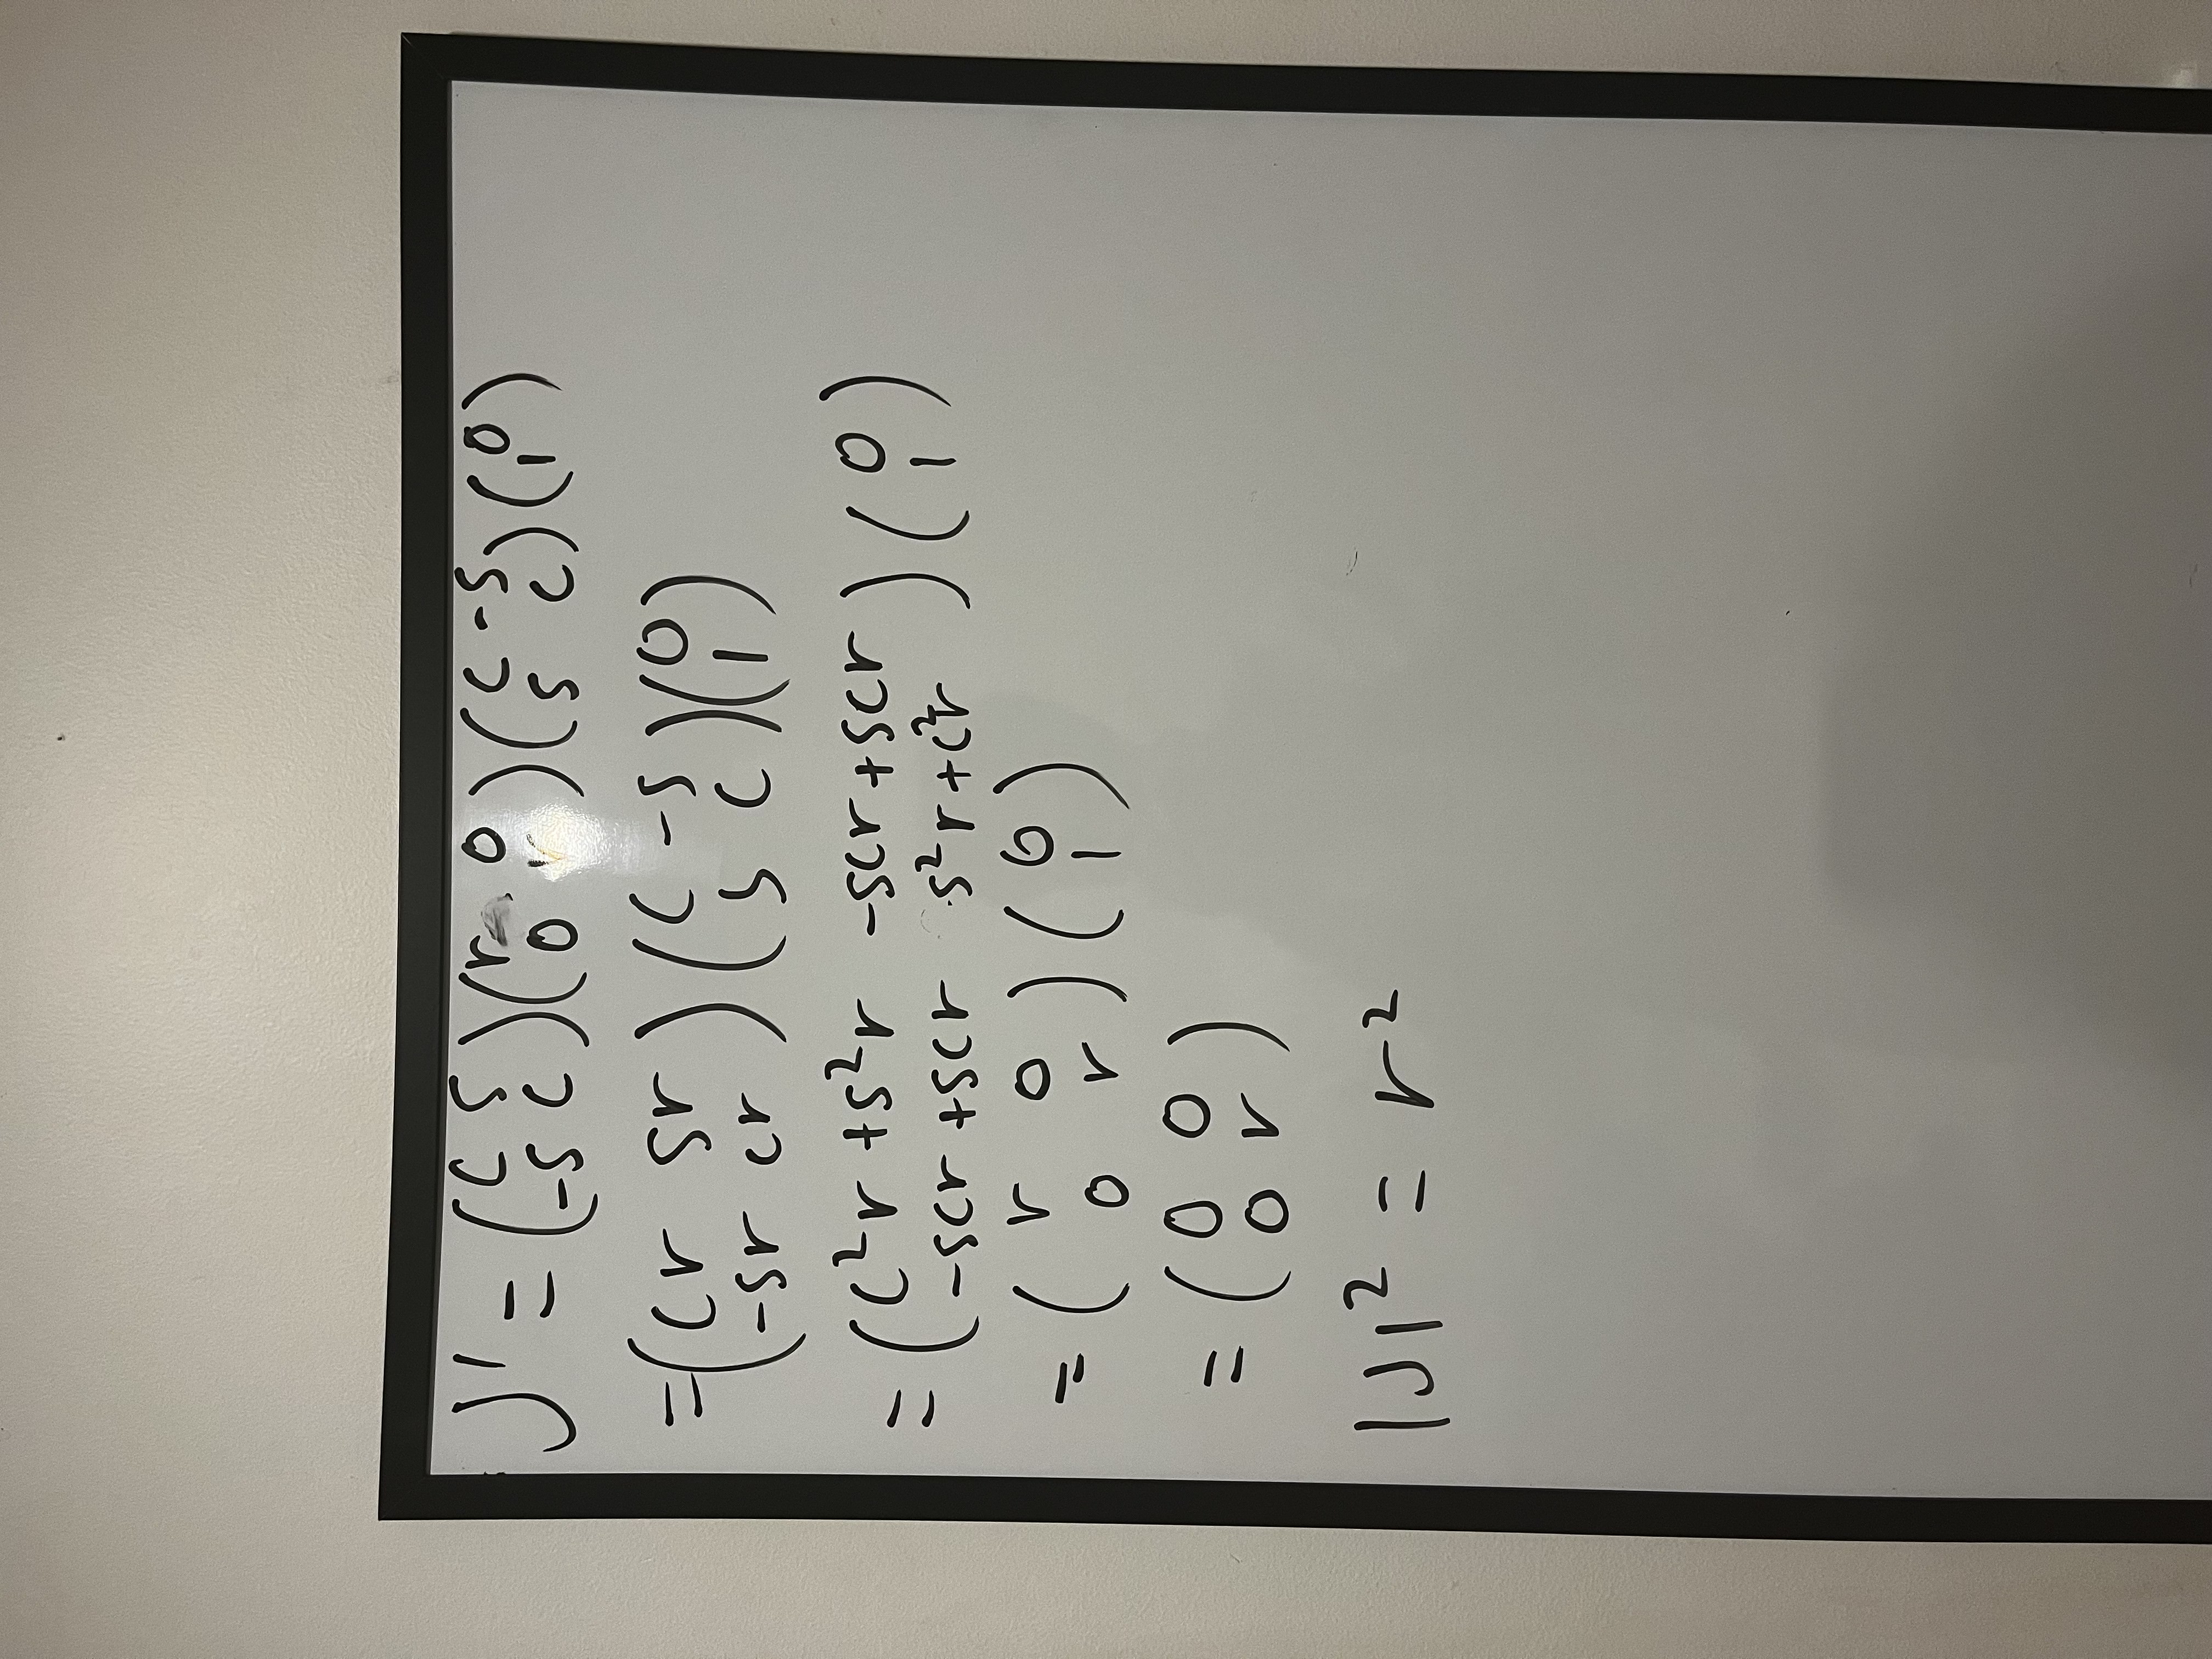 J' = (c s -s c)(r 0 0 r)(c -s s c)(0 1)
= (cr sr -sr cr)(c -s s c)(0 1)
= (c²r + s²r -scr + scr -scr + scr s²r + c²r)(0 1)
= (r 0 0 r)(0 1)
= (0 0 0 r)
|J|² = r²